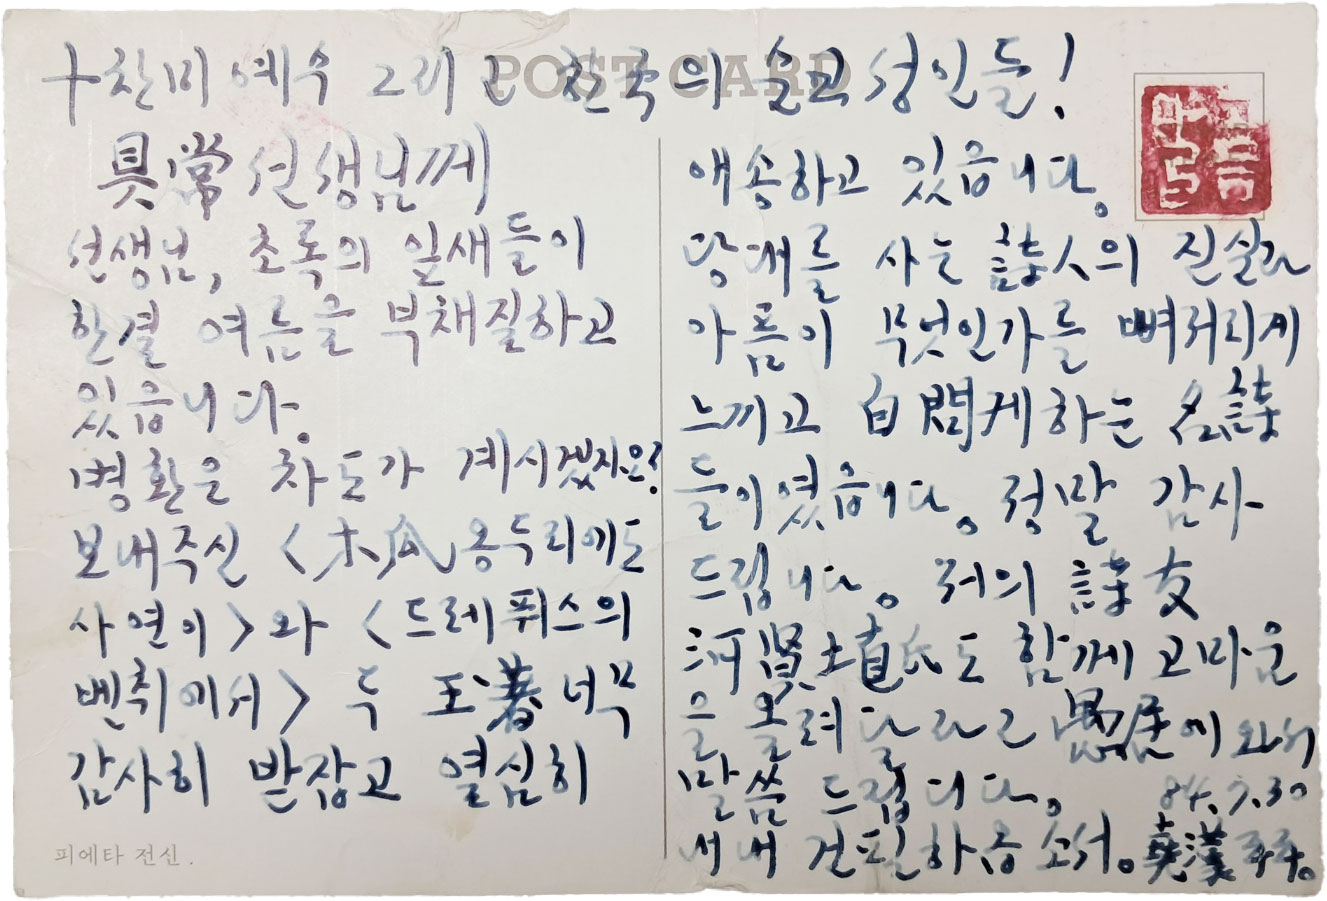 十찬미 예수 그리고 한국의 순교 성인들!
POST CARD
具常 선생님께
선생님, 초록의 잎새들이
한결 여름을 부채질하고
있읍니다.
병환은 차도가 계시겠지요?
보내주신 <木瓜 옹두리에도
사연이>와 <드레퓌스의
벤취에서> 두 玉著 너무
감사히 받잡고 열심히
피에타 전신.
애송하고 있읍니다.
당대를 사는 詩人의 진실과
아픔이 무엇인가를 뼈저리게
느끼고 自問케하는 名詩
들이였읍니다. 정말 감사
드립니다. 저의 詩友
河賢植氏도 함께 고마운
을 올려달라고 愚居에 와서
말씀 드립니다. 84.7.30
내내 건필하옵소서.